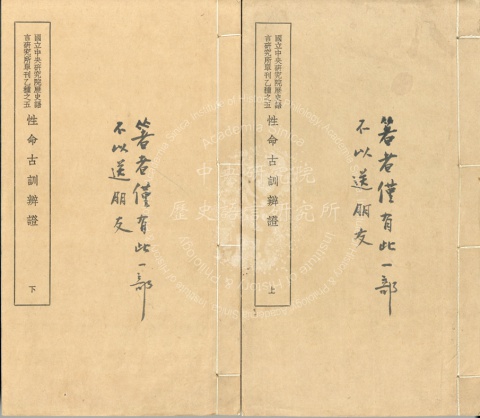 國立中央研究院歷史語
言研究所單刊乙種之五
性命古訓辨證
上
箸者僅有此一部
不以送朋友
國立中央研究院歷史語
言研究所單刊乙種之五
性命古訓辨證
下
箸者僅有此一部
不以送朋友
中央研究院
歷史語言研究所
Academia Sinica
Institute of History & Philology